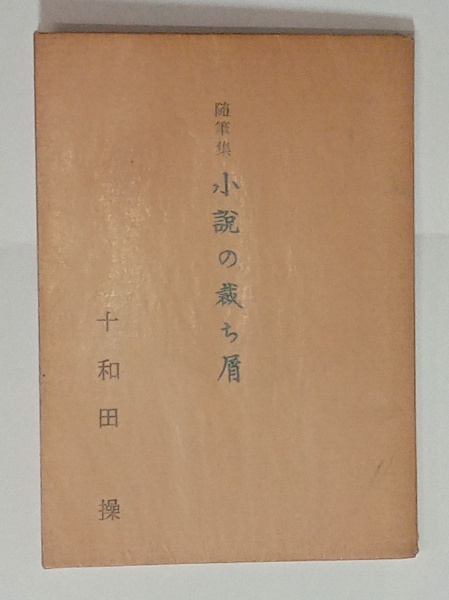 随筆集 小說の裁ち屑
十和田 操